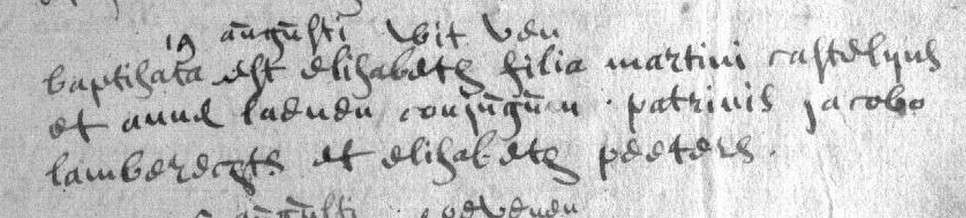 19 augusti wit ven
baptisata est elisabeth filia martini castelyns
et anne laenen conjugum . patrinis jacobo
lamberechts et elisabeth peeters .
augusti coevenen